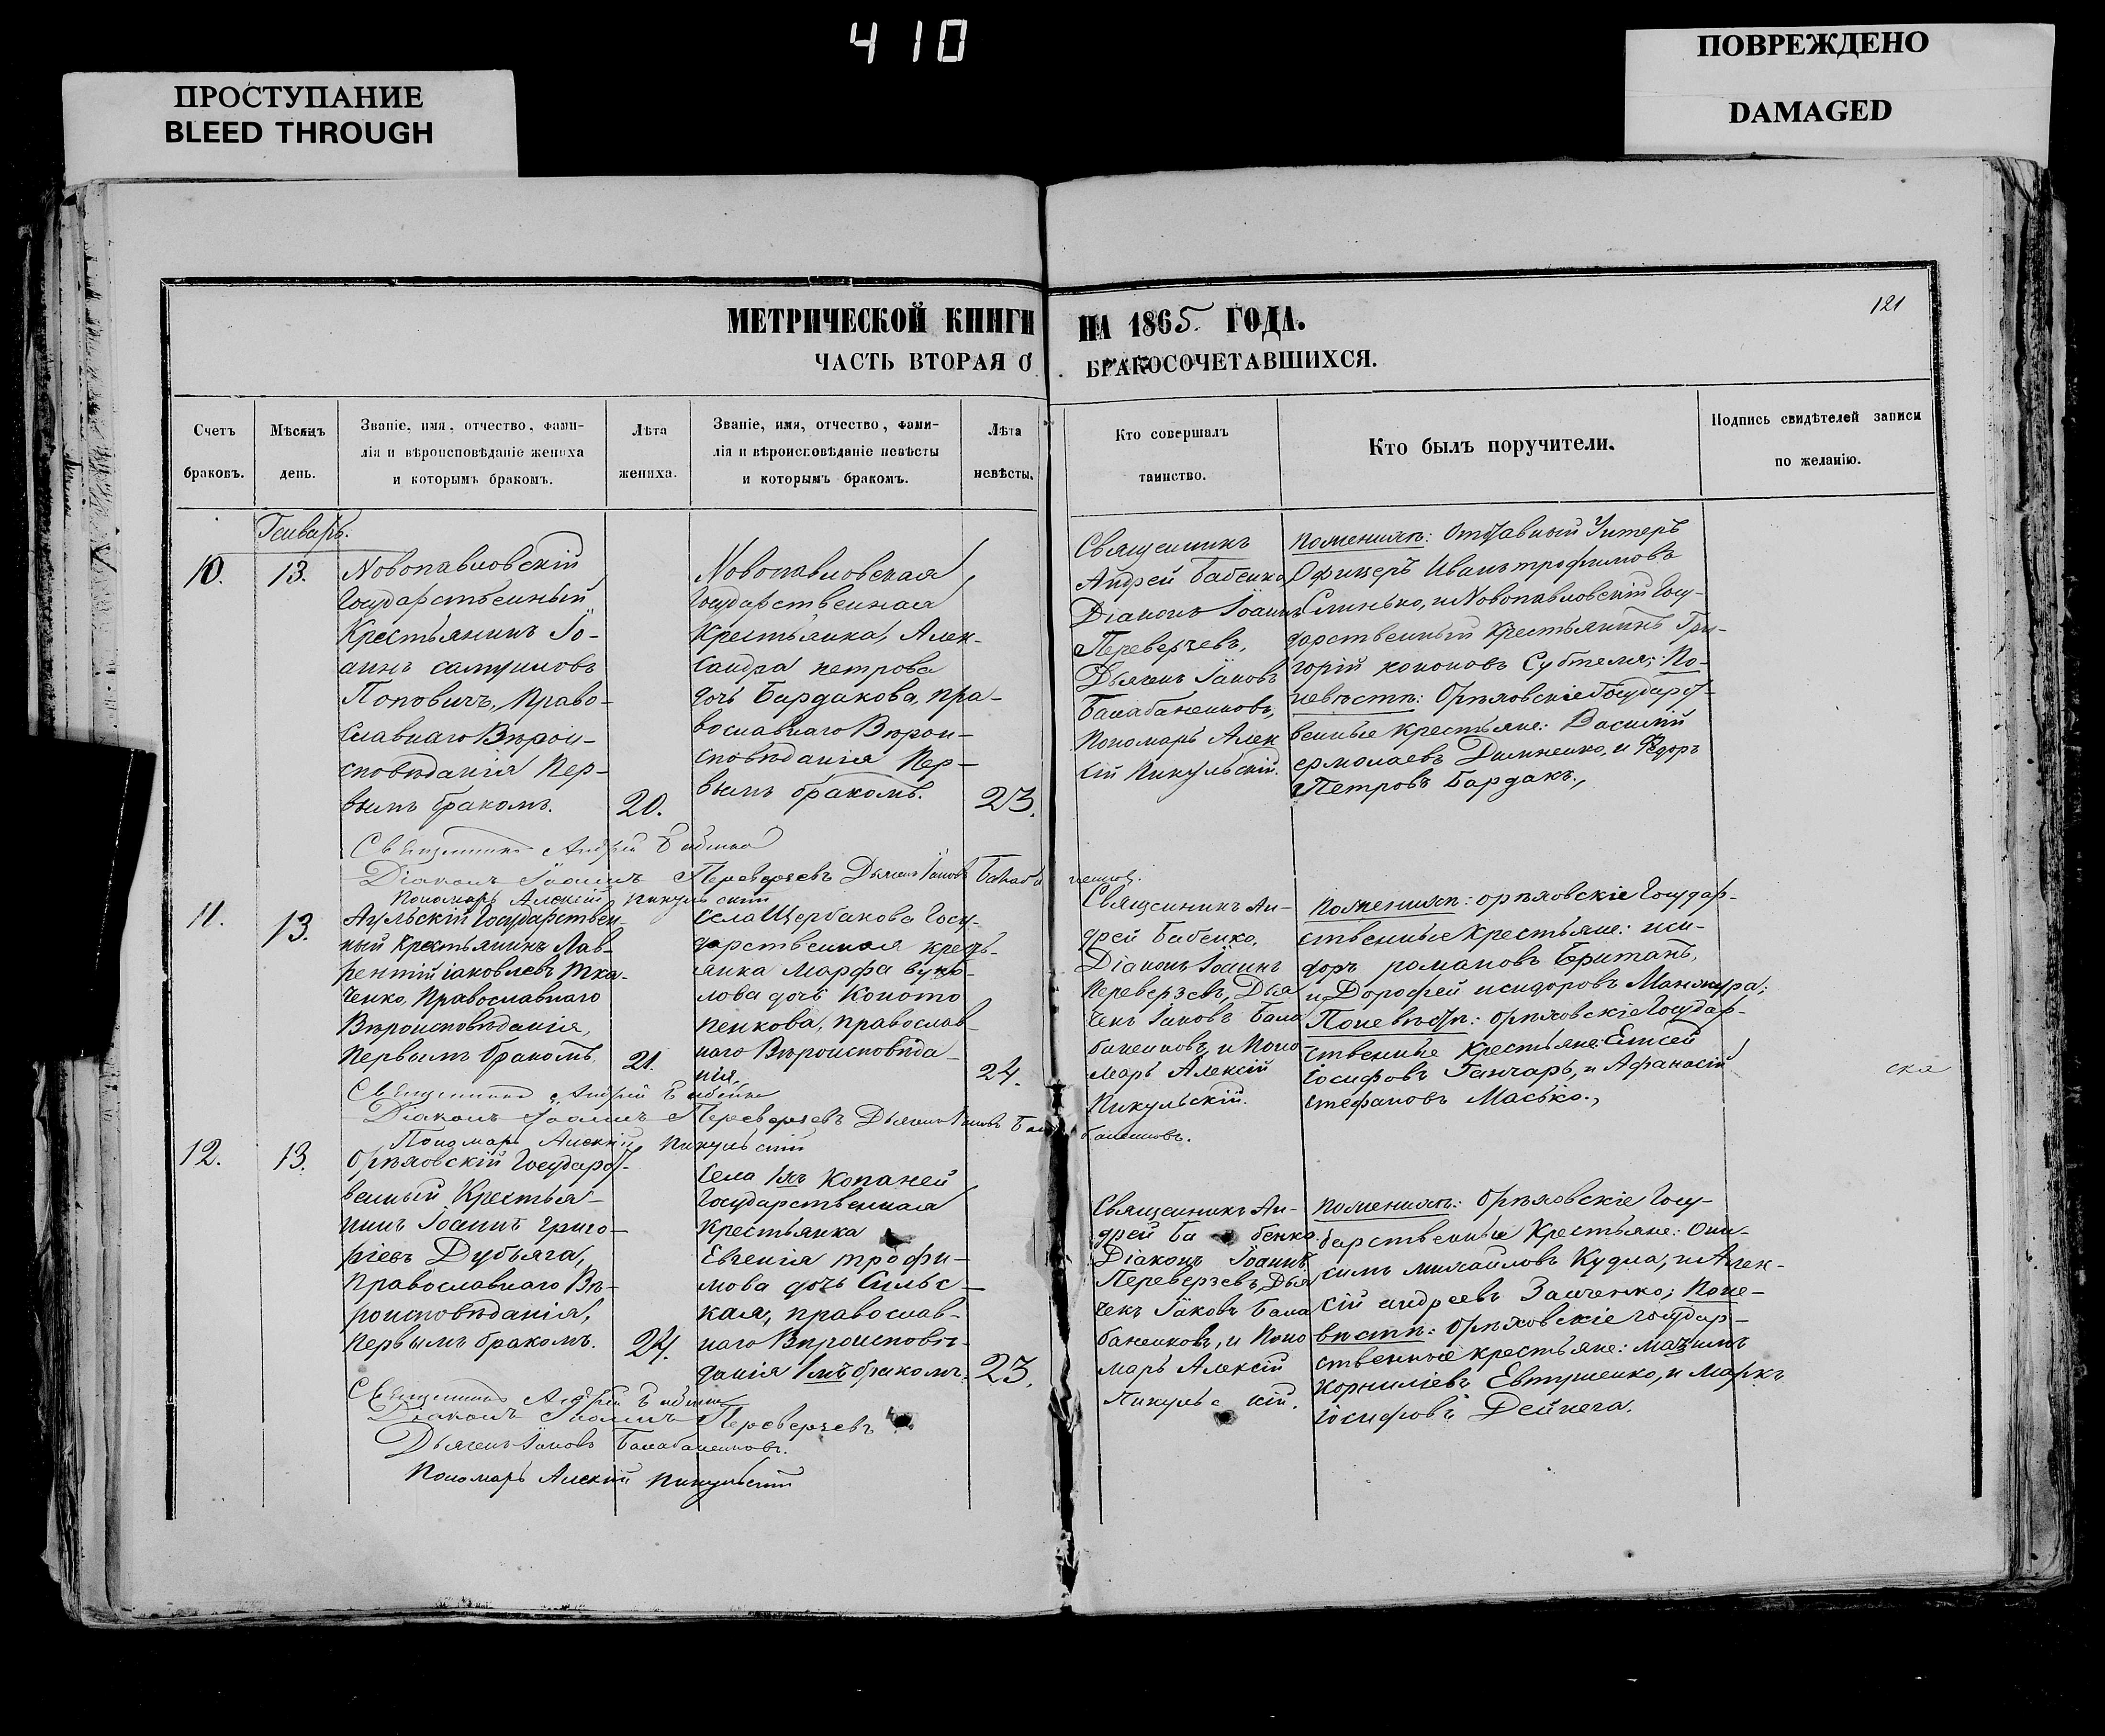 410
ПРОСТУПАНИЕ
BLEED THROUGH
ПОВРЕЖДЕНО
DAMAGED
121
МЕТРИЧЕСКОЙ КНИГИ НА 1865 ГОДА.
ЧАСТЬ ВТОРАЯ О БРАКОСОЧЕТАВШИХСЯ.
Счетъ
браковъ.
Мѣсяцъ
день.
Званіе, имя, отчество, фами-
лія и вѣроисповѣданіе жениха
и которымъ бракомъ.
Лѣта
жениха.
Званіе, имя, отчество, фами-
лія и вѣроисповѣданіе невѣсты
и которымъ бракомъ.
Лѣта
невѣсты.
Кто совершалъ
таинство.
Кто былъ поручители.
Подпись свидѣтелей записи
по желанію.
Генварь.
10.
13.
Новопавловскій
Государственный
Крестьянинъ Іо-
аннъ самуиловъ
Поповичъ, Право-
славнаго Вѣрои-
сповѣданія Пер-
вымъ бракомъ.
20.
Новопавловская
Государственная
Крестьянка, Алек-
сандра петрова
дочь Бардакова, пра-
вославнаго Вѣрои-
сповѣданія Пер-
вымъ бракомъ.
23.
Священникъ
Андрей Бабенко
Діаконъ Іоаннъ
Переверзевъ,
Дьячекъ Іаковъ
Балабаненковъ,
Пономарь Алек
сій Пикульскій.
Поженихѣ: Отставной Унтеръ
Офицеръ Иванъ трофимовъ
Слинько, и Новопавловскій Госу-
дарственный Крестьянинъ Гри-
горій кононовъ Субтеля; По-
невѣстѣ: Орѣховскіе Государст-
венные крестьяне: Василій
ермолаевъ Дымненко, и Ѳедоръ
Петровъ Бардакъ.,
Священникъ Андрей Бабенко
Діаконъ Іоаннъ Переверзевъ Дьячекъ Іаковъ Балаба
ненков.
Пономарь Алексій Пикульскій
11.
13.
Аульскій Государствен-
ный Крестьянинъ Лав-
рентій іаковлевъ Тка-
ченко, Православнаго
Вѣроисповѣданія,
Первымъ бракомъ.
21.
села Щербакова Госу-
дарственная кресть-
янка Марфа вуко-
лова дочь Коното
пенкова, православ-
наго Вѣроисповѣда-
нія.
24.
Священникъ Ан-
дрей Бабенко,
Діаконъ Іоаннъ
Переверзевъ, Дья
чекъ Іаковъ Бала
баненковъ, и Поно
марь Алексій
Пикульскій.
Поженихѣ: орѣховскіе Государ-
ственные Крестьяне: иси-
доръ романовъ Британъ,
и Дорофей исидоровъ Манжура;
Поневѣстѣ: орѣховскіе Государ-
ственные Крестьяне: Елисей
іосифовъ Ганчарь, и Афанасій
стефановъ Масько.,
ска
Священникъ Андрей Бабенко
Діаконъ Іоаннъ Переверзевъ Дьячекъ Іаковъ Бала
баненковъ.
Пономарь Алексій Пикульскій
12.
13.
Орѣховскій Государст-
венный Крестья-
нинъ Іоаннъ григо-
ріевъ Дубъяга,
православнаго Вѣ-
роисповѣданія,
Первымъ бракомъ.
24.
Села 1хъ Копаней
Государственная
Крестьянка
Евгенія трофи-
мова дочь Сильс-
кая, православ-
наго Вѣроисповѣ-
данія 1мъ бракомъ.
23.
Священникъ Ан-
дрей Бабенко.
Діаконъ Іоаннъ
Переверзевъ, Дья
чекъ Іаковъ Бала
баненковъ, и Поно
марь Алексій
Пикульскій.
Поженихѣ: Орѣховскіе Госу-
дарственные Крестьяне: Они-
симъ михайловъ Кудла, и Алек-
сій андреевъ Заиченко; Поне-
вѣстѣ: Орѣховскіе государ-
ственные крестьяне: мазимъ
корниліевъ Евтушенко, и Маркъ
іосифовъ Дейнега.
Священникъ Андрей Бабенко
Діаконъ Іоаннъ Переверзевъ
Дьячекъ Іаковъ Балабаненковъ.
Пономарь Алексій Пикульскій